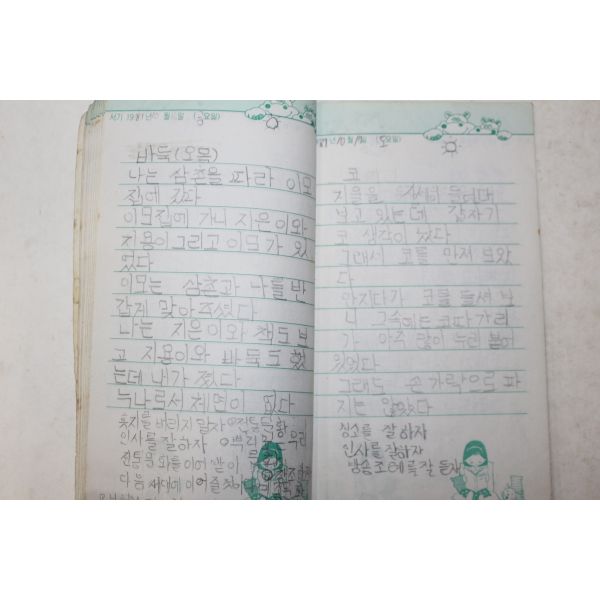 서기 1981년 월 일 (금요일)
바둑(오목)
나는 삼촌을 따라 이모
집에 갔다
이모집에 가니 지은이와
지용이 그리고 이모가 있
었다
이모는 삼촌과 나를 반
갑게 맞아 주셨다
나는 지은이와 책도 보
고 지용이와 바둑도 했
는데 내가 졌다
누나로서 체면이 없다
휴지를 버리지 말자
인사를 잘하자 뿌리 우리
전통문화를 이어받아
다음 세대에 이어줄
년 월 일 (토요일)
코
거울을 들여다
보고 있는데 갑자기
코 생각이 났다
그래서 코를 만져 보았
다
만지다가 코를 들셔 보
니 그속에는 코딱가리
가 아주 많이 누러 붙어
있었다
그래도 손가락으로 파
지는 않았다
청소를 잘하자
인사를 잘하자
방송조례를 잘 듣자